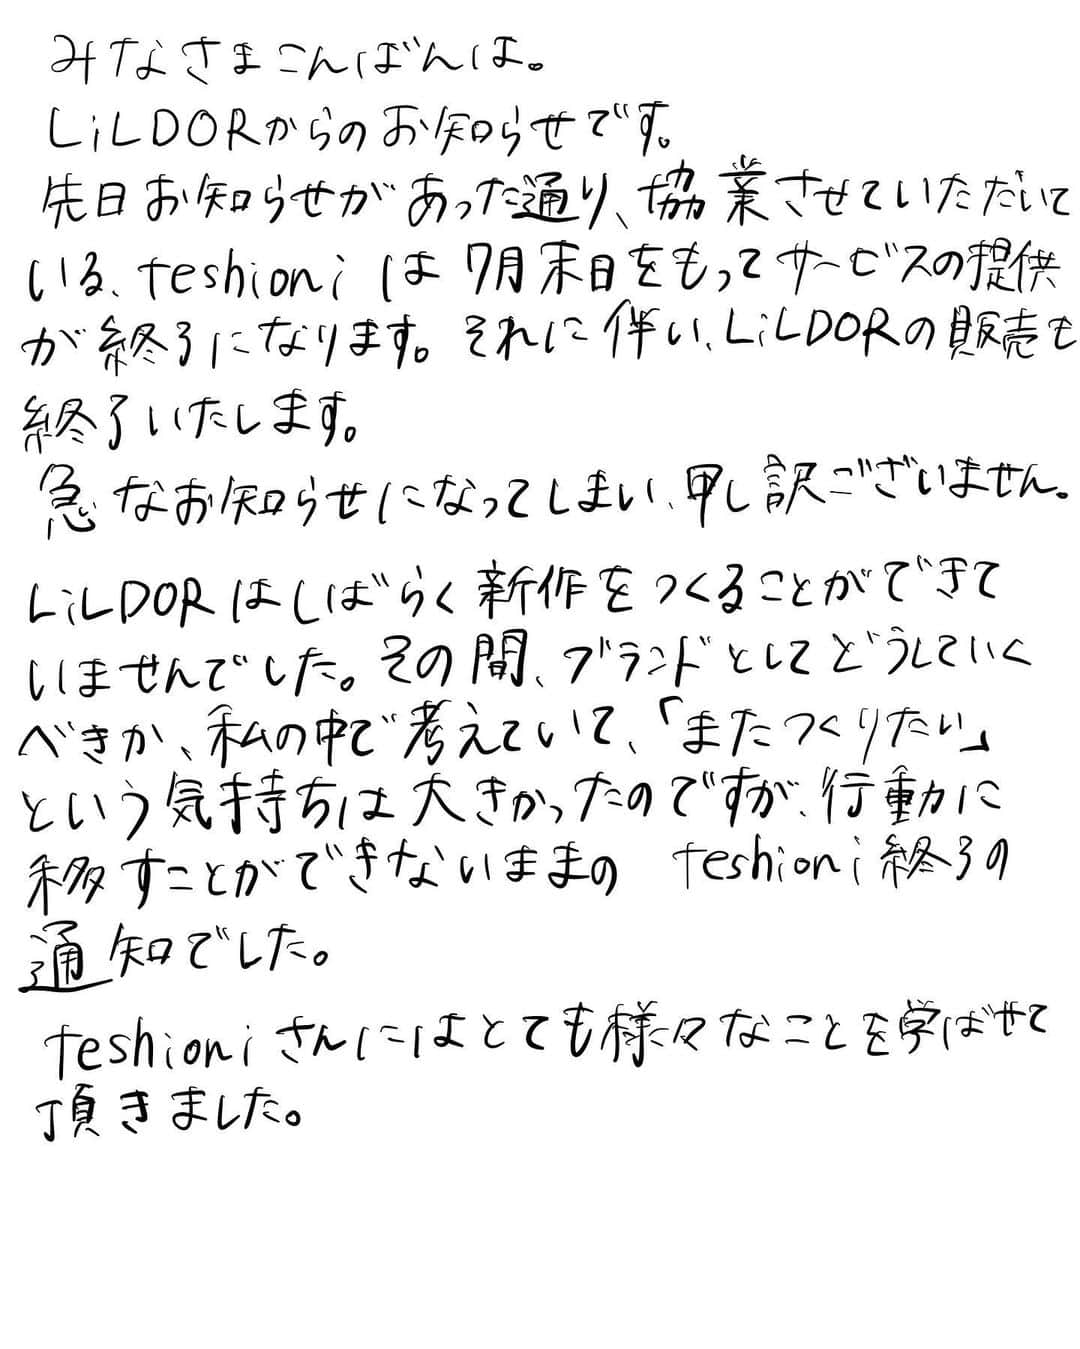 みなさまこんばんは。
LiLDORからのお知らせです。
先日お知らせがあった通り、協業させていただいて
いる、teshioni は 7月末日をもってサービスの提供
が終了になります。それに伴い、LiLDORの販売も
終了いたします。
急なお知らせになってしまい、申し訳ございません。
LiLDORはしばらく新作をつくることができて
いませんでした。その間、ブランドとしてどうしていく
べきか、私の中で考えていて、「またつくりたい」
という気持ちは大きかったのですが、行動に
移すことができないままの teshioni終了の
通知でした。
teshioniさんにはとても様々なことを学ばせて
頂きました。